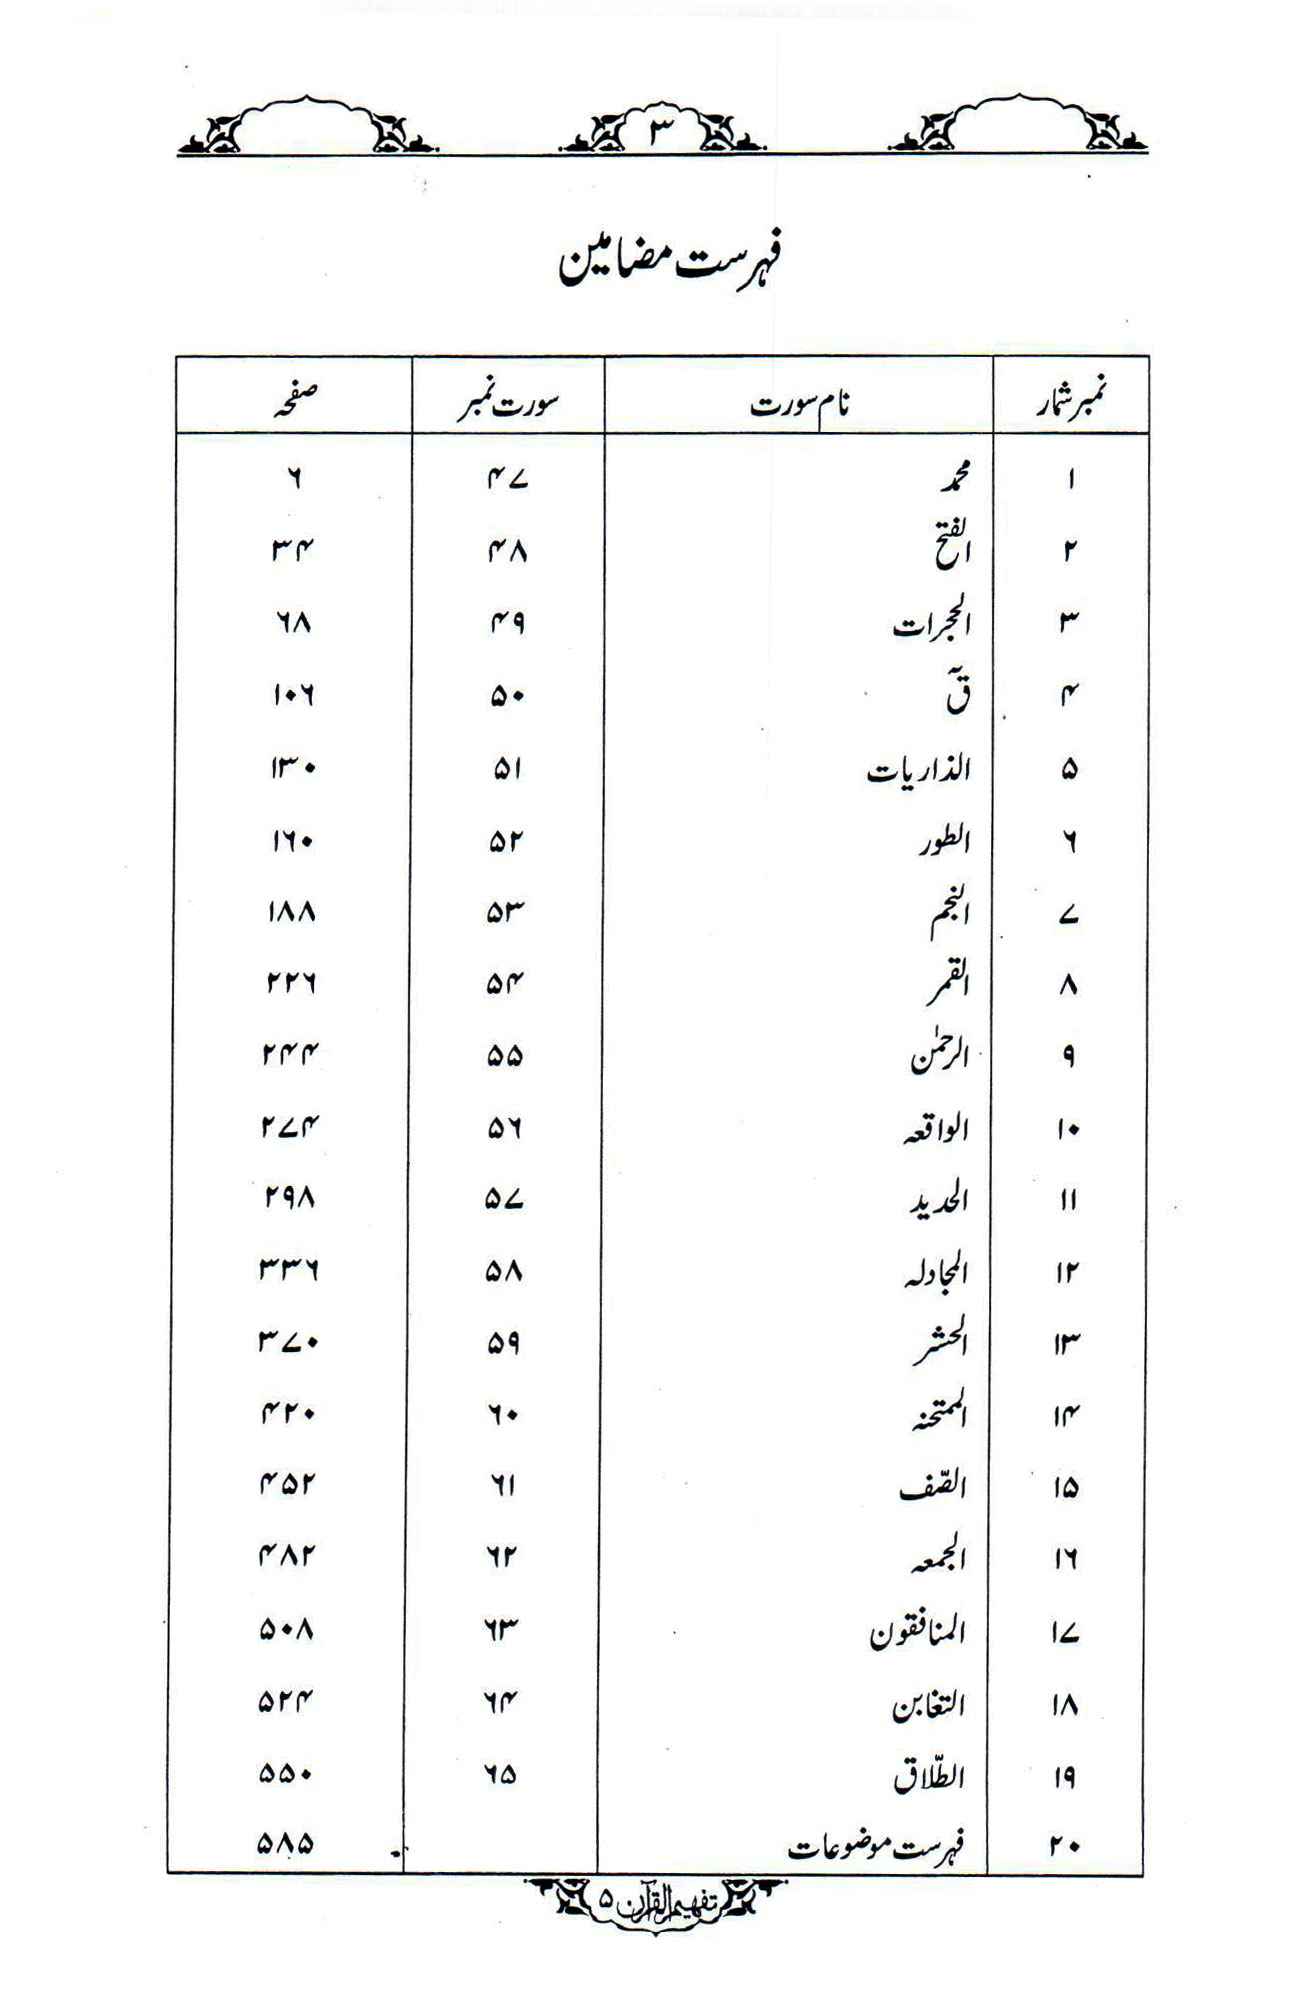 ۳
فہرست مضامین
نمبر شمار نام سورت سورت نمبر صفحہ
۱ محمد ۴۷ ۶
۲ الفتح ۴۸ ۳۴
۳ الحجرات ۴۹ ۶۸
۴ قٓ ۵۰ ۱۰۶
۵ الذاریات ۵۱ ۱۳۰
۶ الطور ۵۲ ۱۶۰
۷ النجم ۵۳ ۱۸۸
۸ القمر ۵۴ ۲۲۶
۹ الرحمٰن ۵۵ ۲۴۴
۱۰ الواقعہ ۵۶ ۲۷۴
۱۱ الحدید ۵۷ ۲۹۸
۱۲ المجادلہ ۵۸ ۳۳۶
۱۳ الحشر ۵۹ ۳۷۰
۱۴ الممتحنہ ۶۰ ۴۲۰
۱۵ الصّف ۶۱ ۴۵۲
۱۶ الجمعہ ۶۲ ۴۸۲
۱۷ المنافقون ۶۳ ۵۰۸
۱۸ التغابن ۶۴ ۵۲۴
۱۹ الطّلاق ۶۵ ۵۵۰
۲۰ فہرست موضوعات ۵۸۵
تفہیم القرآن ۵